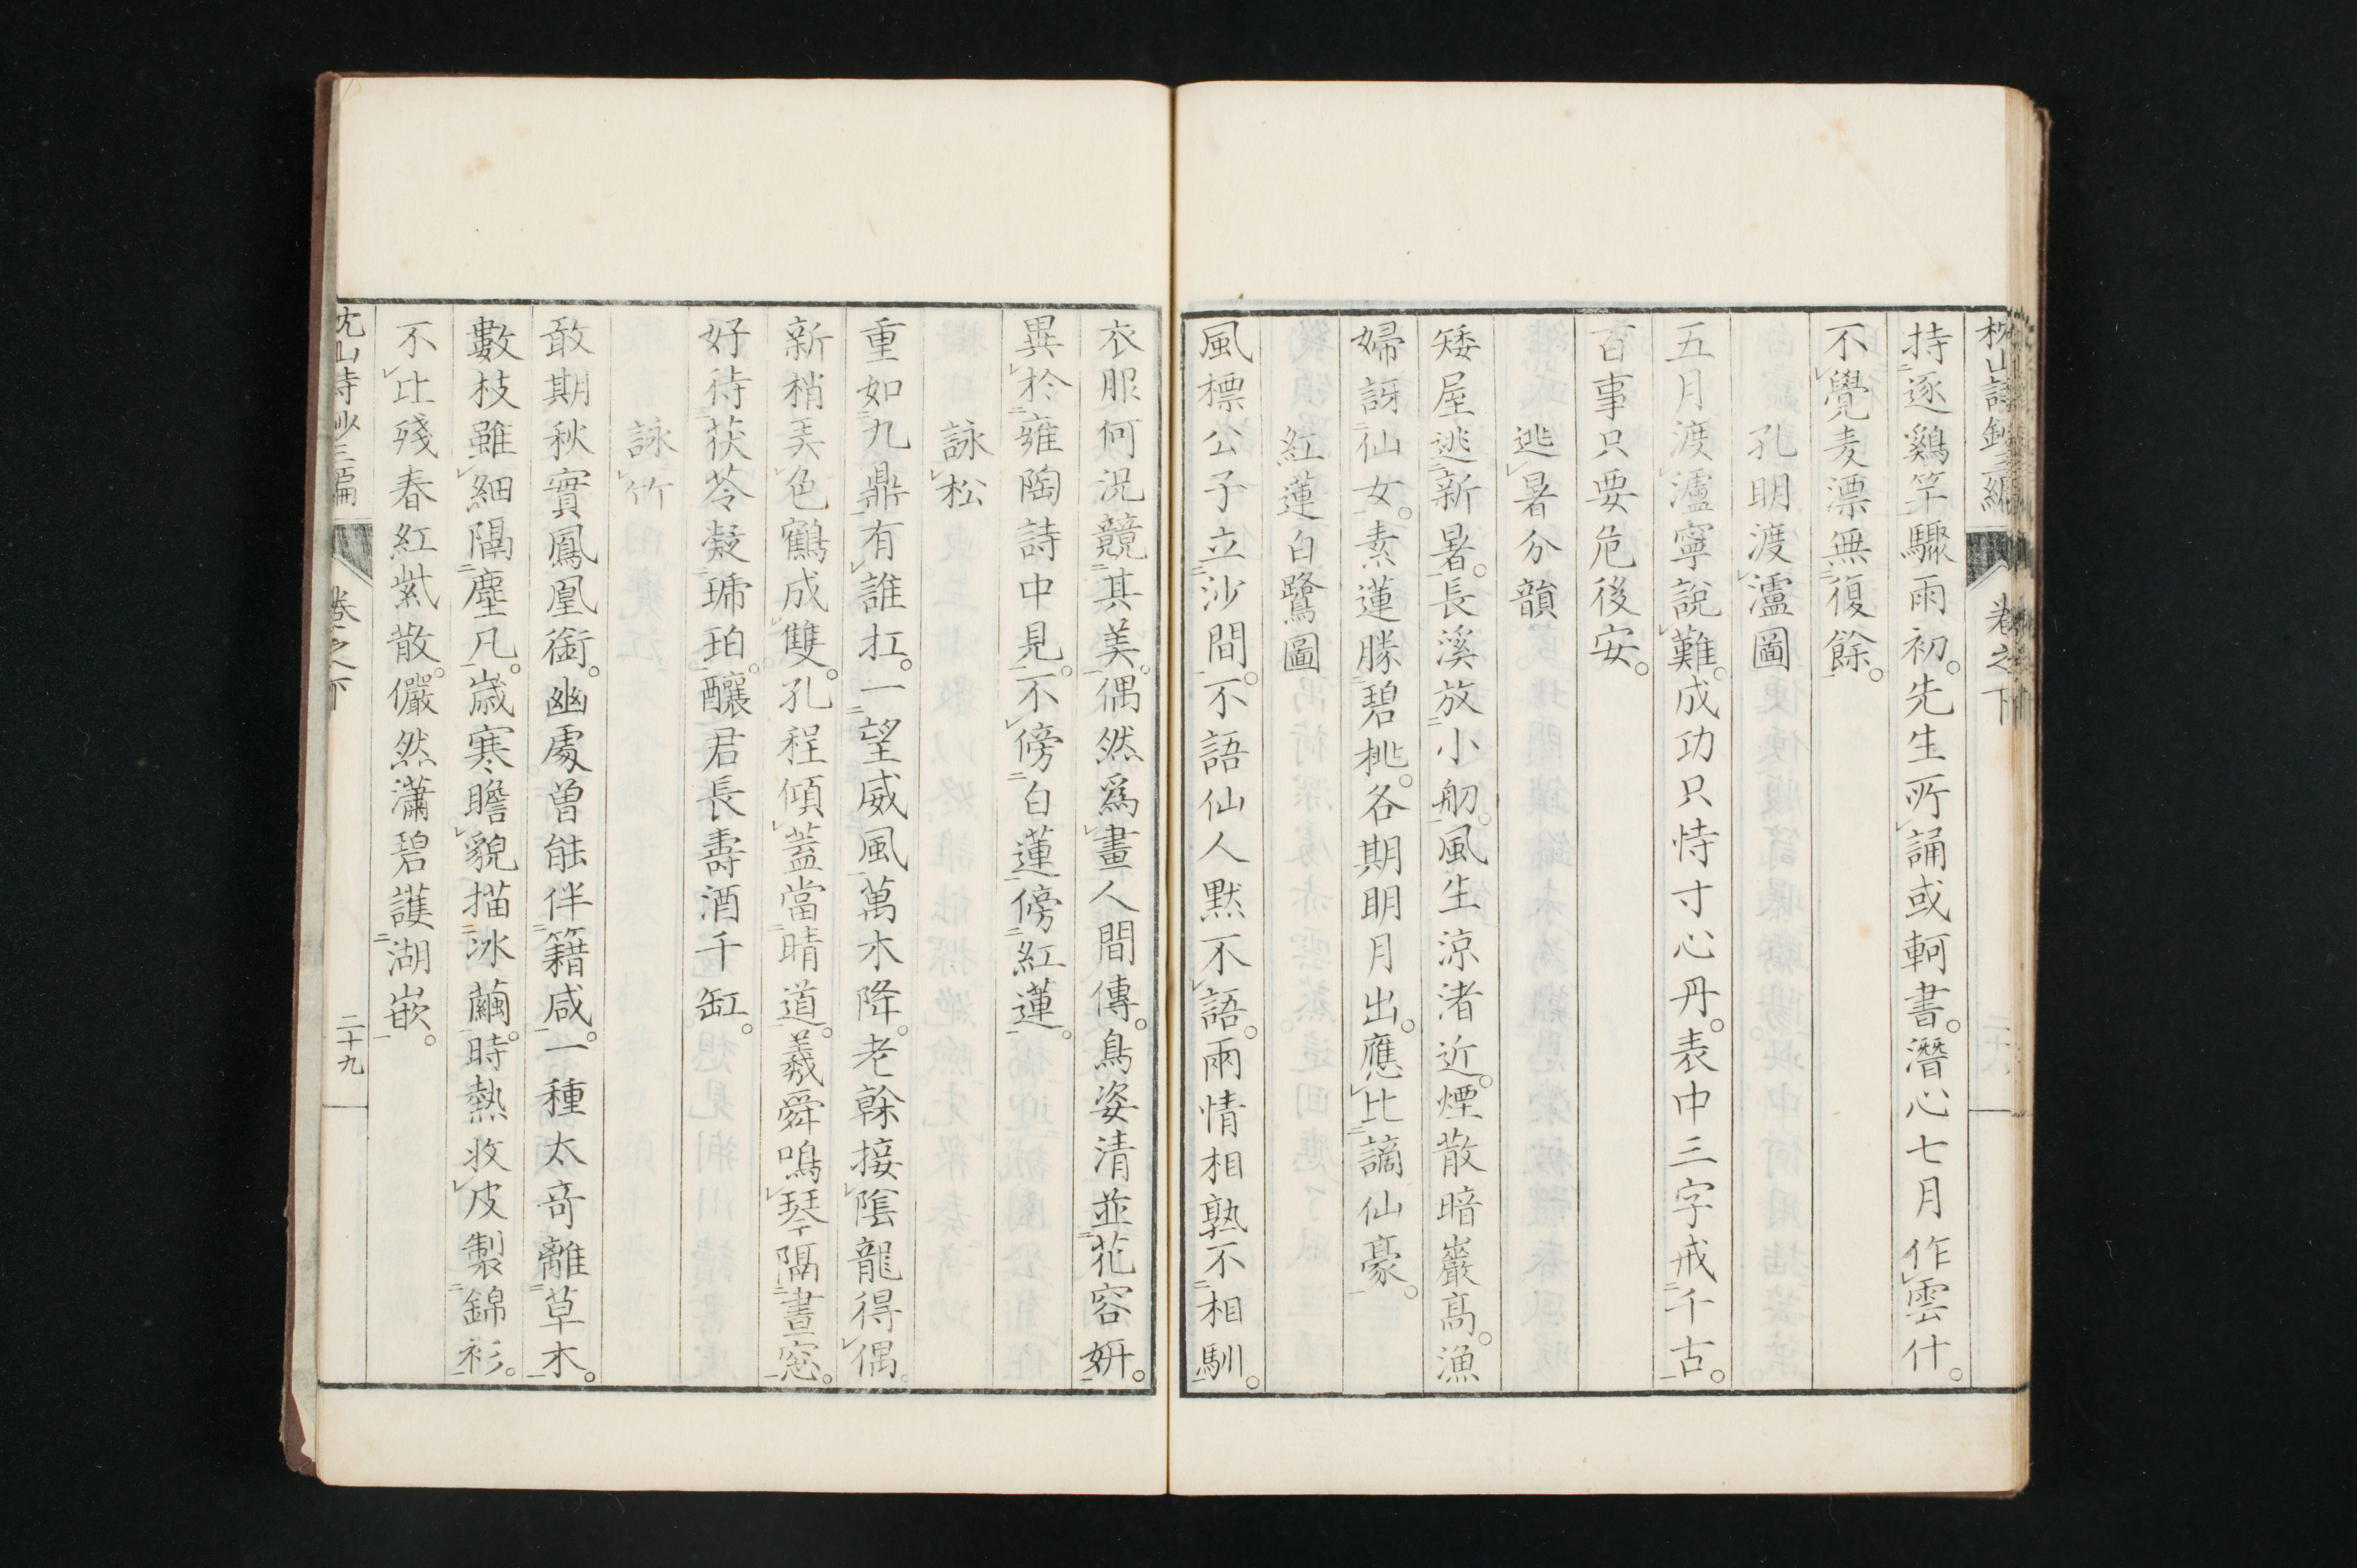 枕山詩鈔三編 卷之下
持逐鷄竿驟雨初。先生所誦或軻書。潛心七月作雲什。
不覺麦漂無復餘。
孔明渡瀘圖
五月渡瀘寧說難。成功只恃寸心丹。表中三字戒千古。
百事只要危後安。
逃暑分韻
矮屋逃新暑。長溪放小舠。風生涼渚近。煙散暗巖高。漁
婦訝仙女。素蓮勝碧桃。各期明月出。應比謫仙豪。
紅蓮白鷺圖
風標公子立沙間。不語仙人默不語。兩情相熟不相馴。
衣服何況競其美。偶然爲畫人間傳。鳥姿清並花容妍。
異於雍陶詩中見。不傍白蓮傍紅蓮。
詠松
重如九鼎有誰扛。一望威風萬木降。老榦接陰龍得偶
新梢弄色鶴成雙。孔程傾蓋當晴道。羲舜鳴琴隔晝窓。
好待茯苓凝琥珀。釀君長壽酒千缸。
詠竹
敢期秋實鳳凰銜。幽處曾能伴籍咸。一種太奇離草木。
數枝雖細隔塵凡。歲寒瞻貌描冰繭。時熱收皮製錦衫。
不比殘春紅紫散。儼然瀟碧護湖嵌。
枕山詩鈔三編 卷之下 二十九